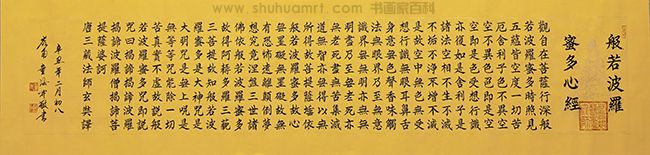 www.shuhuamr.com 书画家百科
般若波羅
蜜多心經
觀自在菩薩行深般
若波羅蜜多時照見
五蘊皆空度一切苦
厄舍利子色不異空
空不異色色即是空
空即是色受想行識
亦復如是舍利子是
諸法空相不生不滅
不垢不淨不增不減
是故空中無色無受
想行識無眼耳鼻舌
身意無色聲香味觸
法無眼界乃至無意
識界無無明亦無無
明盡乃至無老死亦
無老死盡無苦集滅
道無智亦無得以無
所得故菩提薩埵依
般若波羅蜜多故心
無罣礙無罣礙故無
有恐怖遠離顛倒夢
想究竟涅槃三世諸
佛依般若波羅蜜多
故得阿耨多羅三藐
三菩提故知般若波
羅蜜多是大神咒是
大明咒是無上咒是
無等等咒能除一切
苦真實不虛故說般
若波羅蜜多咒即說
咒曰揭諦揭諦波羅
揭諦波羅僧揭諦菩
提薩婆訶
唐三藏法師玄奘譯
辛丑年二月初八